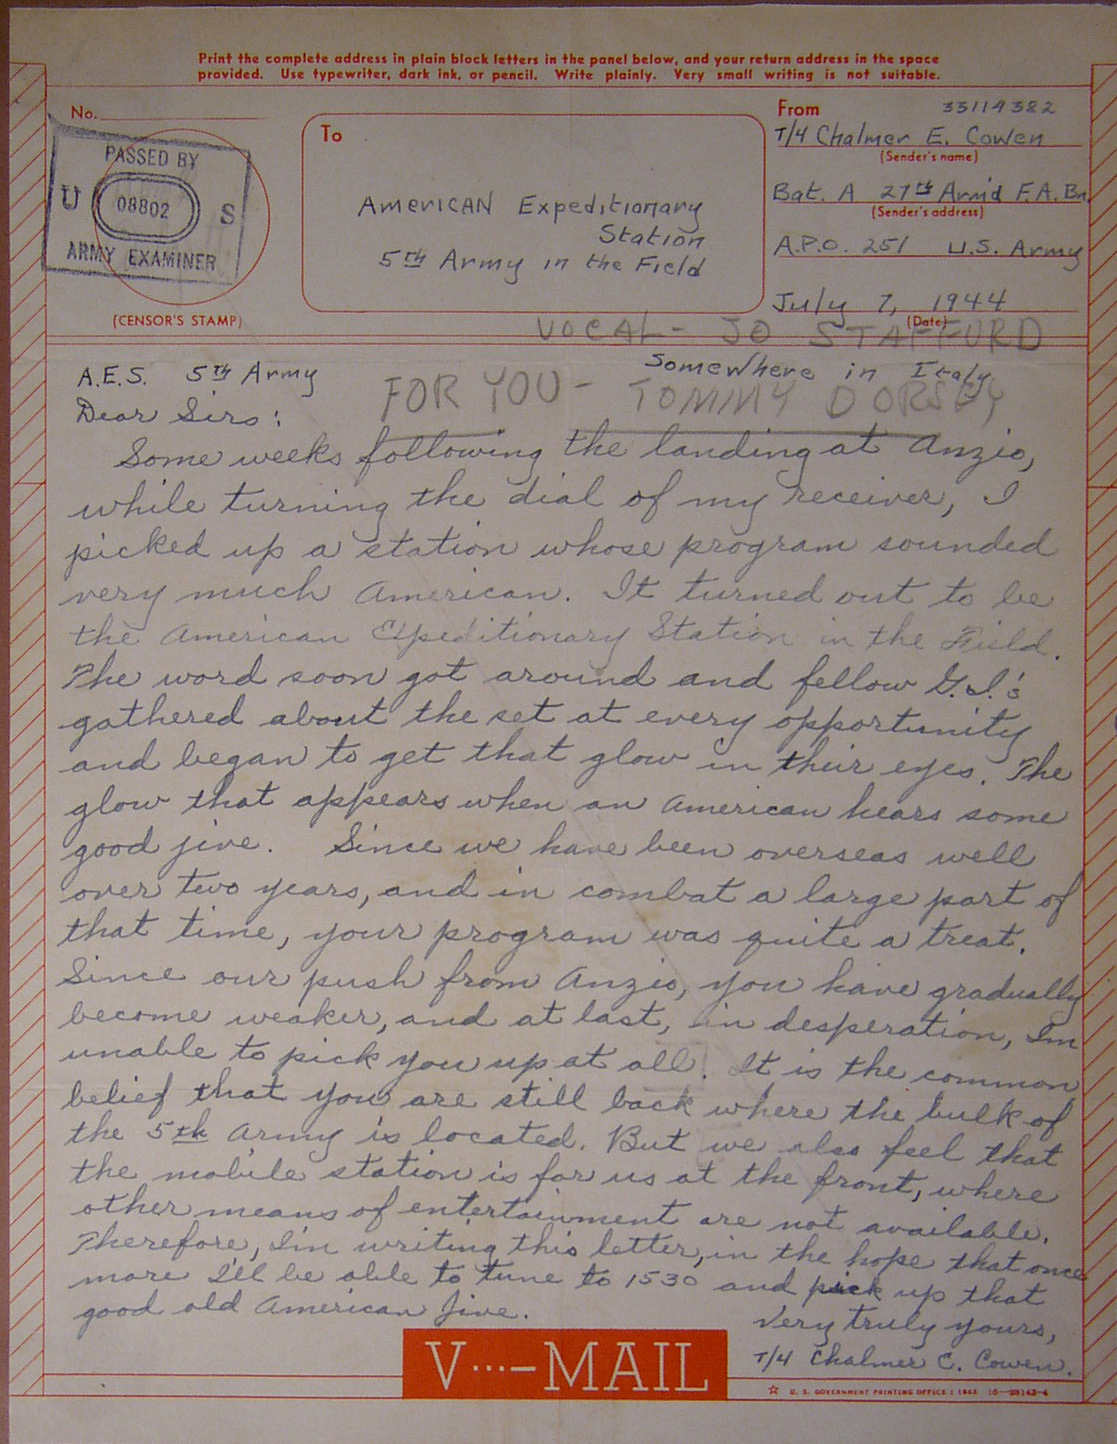 Print the complete address in plain block letters in the panel below, and your return address in the space
provided. Use typewriter, dark ink, or pencil. Write plainly. Very small writing is not suitable.
No.
PASSED BY
U 08802 S
ARMY EXAMINER
(CENSOR'S STAMP)
To
AMERICAN Expeditionary
Station
5th Army in the Field
From 33119382
T/4 Chalmer E. Cowen
(Sender's name)
Bat. A 27th Arm'd F.A. Bn.
(Sender's address)
A.P.O. 251 U.S. Army
July 7, 1944
(Date)
VOCAL - JO STAFFORD
Somewhere in Italy
A.E.S. 5th Army
FOR YOU - TOMMY DORSEY
Dear Sirs:
Some weeks following the landing at Anzio,
while turning the dial of my receiver, I
picked up a station whose program sounded
very much American. It turned out to be
the American Expeditionary Station in the Field.
The word soon got around and fellow G.I.'s
gathered about the set at every opportunity
and began to get that glow in their eyes. The
glow that appears when an American hears some
good jive. Since we have been overseas well
over two years, and in combat a large part of
that time, your program was quite a treat.
Since our push from Anzio, you have gradually
become weaker, and at last, in desperation, Im
unable to pick you up at all. It is the common
belief that you are still back where the bulk of
the 5th Army is located. But we also feel that
the mobile station is for us at the front, where
other means of entertainment are not available.
Therefore, I'm writing this letter, in the hope that once
more I'll be able to tune to 1530 and pick up that
good old American Jive.
Very truly yours,
T/4 Chalmer E. Cowen.
V···—MAIL
☆ U. S. GOVERNMENT PRINTING OFFICE : 1943 16—28143-4